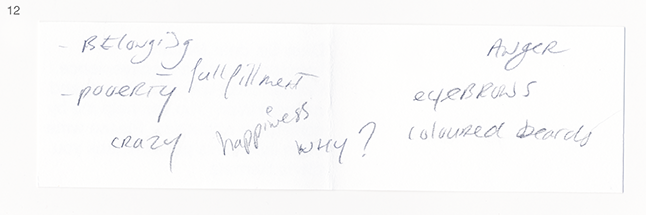 12
- BELonging
- POVERTY fullfillment
CRAZY happiness WHY?
ANgER
eyeBROWS
coloured beards